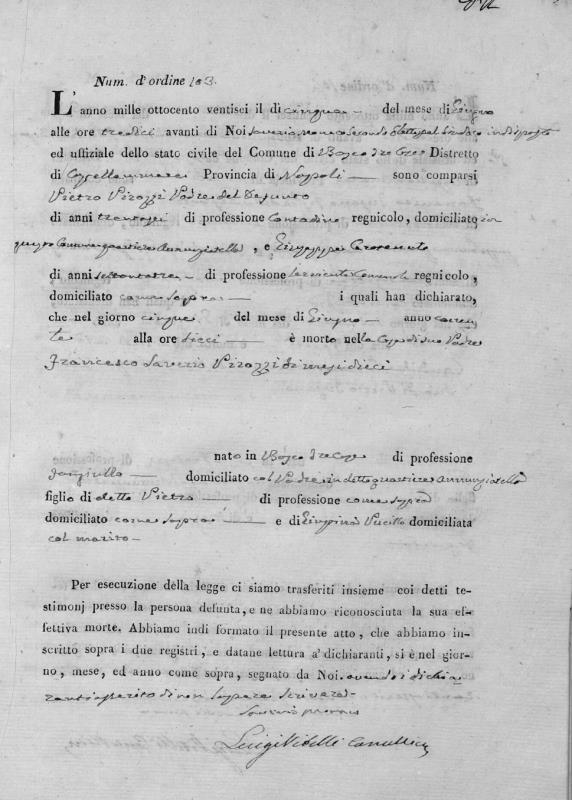 Num. d'ordine 103.
L'anno mille ottocento ventisei il dì cinque del mese di Giugno
alle ore tredici avanti di Noi Saverio
ed uffiziale dello stato civile del Comune di Bosco tre Case Distretto
di Castellammare Provincia di Napoli sono comparsi
Pietro Pirozzi Padre del Defunto
di anni trentasei di professione Contadino regnicolo, domiciliato in
questo Comune quartiere Annunziatella, e Giuseppe
di anni settantatre di professione Serviente Comunale regnicolo,
domiciliato come sopra i quali han dichiarato,
che nel giorno cinque del mese di Giugno anno corren
te alla ore dieci è morto nella Casa di suo Padre
Francesco Saverio Pirozzi di mesi dieci
nato in Bosco tre Case di professione
domiciliato col Padre in detto quartiere Annunziatella
figlio di detto Pietro di professione come sopra
domiciliato come sopra e di domiciliata
col marito
Per esecuzione della legge ci siamo trasferiti insieme coi detti te-
stimonj presso la persona defunta, e ne abbiamo riconosciuta la sua ef-
fettiva morte. Abbiamo indi formato il presente atto, che abbiamo in-
scritto sopra i due registri, e datane lettura a' dichiaranti, si è nel gior-
no, mese, ed anno come sopra, segnato da Noi. avendo i dichia
ranti asserito di non sapere scrivere
Saverio
Luigi Vitelli